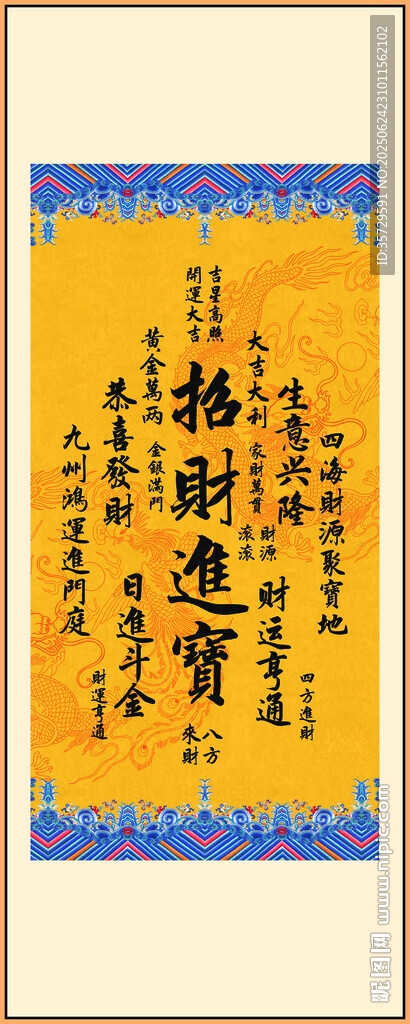 ID:35729591 NO:20250624231011562102
吉星高照
開運大吉
大吉大利
黄金萬两
招財進寶
生意兴隆
恭喜發財
四海財源聚寶地
九州鴻運進門庭
家財萬貫
金銀滿門
財源
滚滚
日進斗金
财运亨通
四方進財
財運亨通
八方
來財
昵图网 www.nipic.com